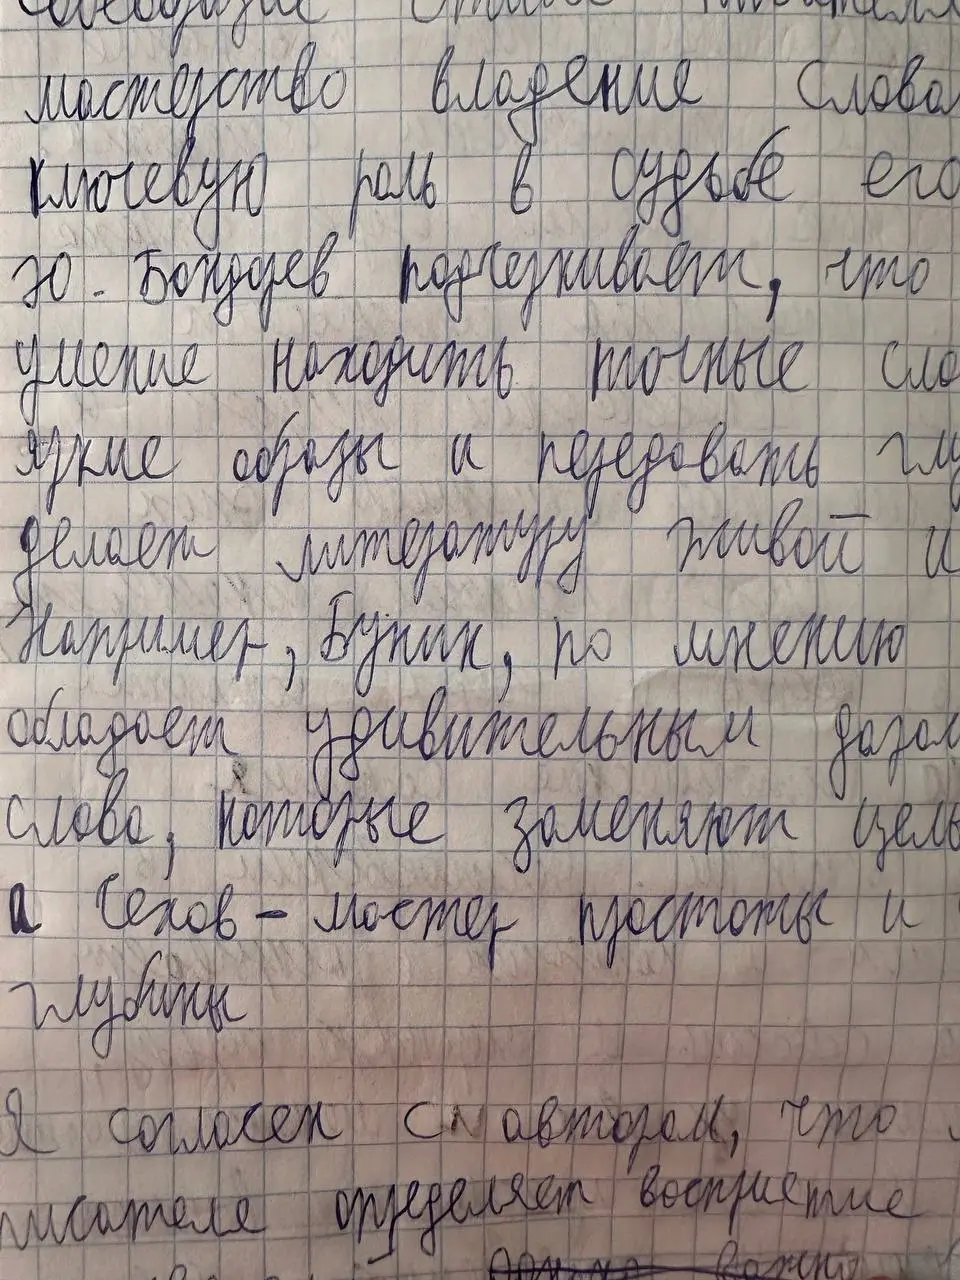 своеобразие стиля писателя
мастерство владение слова
ключевую роль в судьбе его
Ю. Бондарев подчеркивает, что
умение находить точные сло
яркие образы и передавать глу
делает литературу живой и
Например, Бунин, по мнению
обладает удивительным даром
слова, которые заменяют целы
а Чехов – мастер простоты и
глубины
Я согласен с автором, что
писателя определяет восприятие
важно